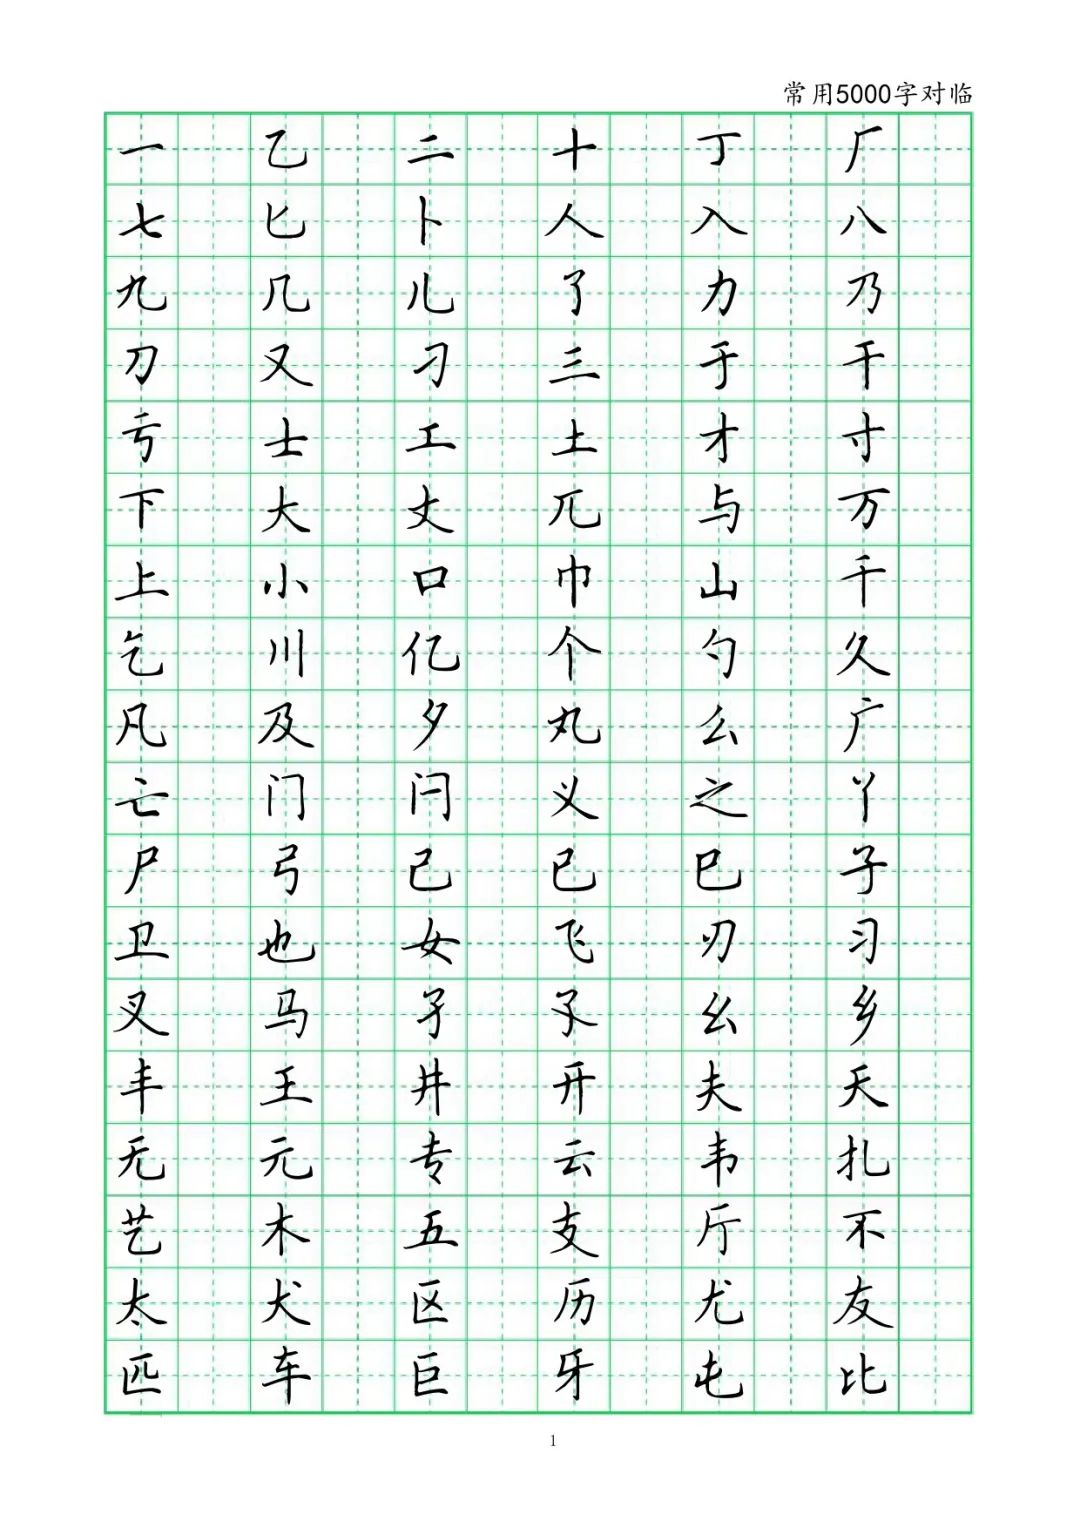 常用5000字对临
一 乙 二 十 丁 厂
七 匕 卜 人 入 八
九 几 儿 了 力 乃
刀 又 刁 三 于 干
亏 士 工 土 才 寸
下 大 丈 兀 与 万
上 小 口 巾 山 千
乞 川 亿 个 勺 久
凡 及 夕 丸 么 广
亡 门 闩 义 之 丫
尸 弓 己 已 巳 子
卫 也 女 飞 刃 习
叉 马 孑 孓 幺 乡
丰 王 井 开 夫 天
无 元 专 云 韦 扎
艺 木 五 支 厅 不
太 犬 区 历 尤 友
匹 车 巨 牙 屯 比
1